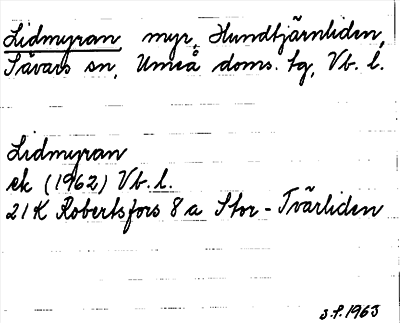 Lidmyran myr, Hundtjärnliden,
Sävars sn, Umeå doms. tg, Vb. l.
Lidmyran
ek (1962) Vb. l.
21K Robertsfors 8 a Stor-Tvärliden
J.P. 1963